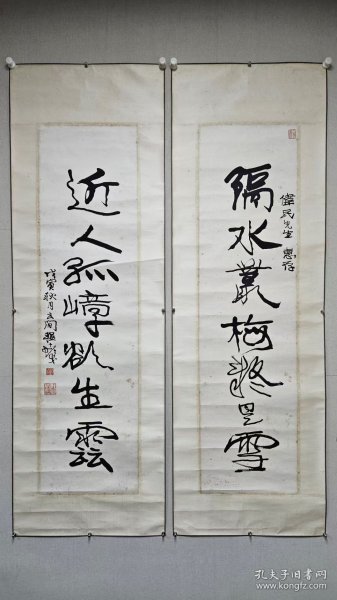 隔水叢梅疑是雪
偉民先生 惠存
近人孤嶂欲生雲
戊寅秋月
孔夫子旧书网